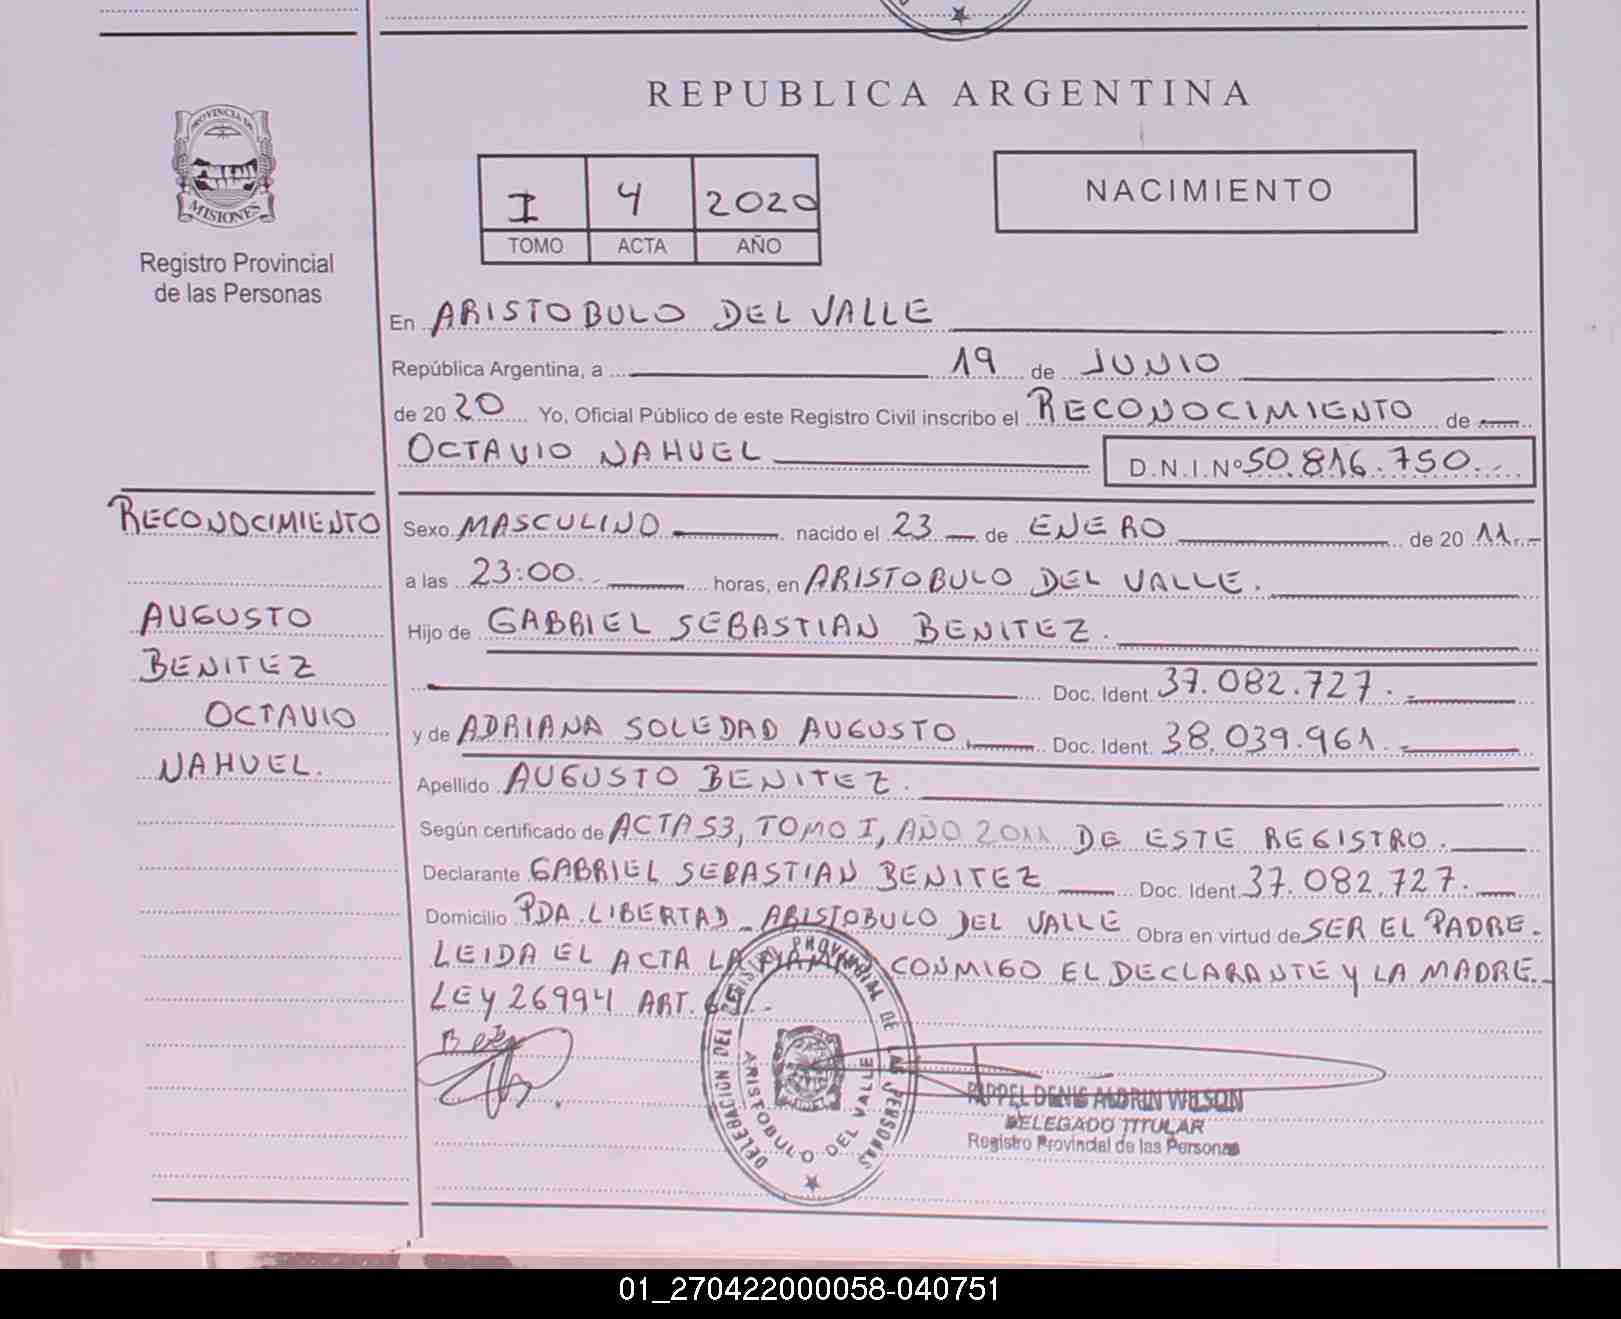 REPUBLICA ARGENTINA
PROVINCIA DE
MISIONES
Registro Provincial
de las Personas
I 4 2020
TOMO ACTA AÑO
NACIMIENTO
En ARISTOBULO DEL VALLE
República Argentina, a 19 de JUNIO
de 2020 Yo, Oficial Público de este Registro Civil inscribo el RECONOCIMIENTO de
OCTAVIO NAHUEL D.N.I.Nº 50.816.750.
RECONOCIMIENTO
AUGUSTO
BENITEZ
OCTAVIO
NAHUEL.
Sexo MASCULINO nacido el 23 de ENERO de 2011.-
a las 23:00. horas, en ARISTOBULO DEL VALLE.
Hijo de GABRIEL SEBASTIAN BENITEZ.
Doc. Ident. 37.082.727.
y de ADRIANA SOLEDAD AUGUSTO. Doc. Ident. 38.039.961.
Apellido AUGUSTO BENITEZ.
Según certificado de ACTA 53, TOMO I, AÑO 2011 DE ESTE REGISTRO.
Declarante GABRIEL SEBASTIAN BENITEZ Doc. Ident. 37.082.727.
Domicilio PDA. LIBERTAD - ARISTOBULO DEL VALLE Obra en virtud de SER EL PADRE.
LEIDA EL ACTA LA FIRMAN CONMIGO EL DECLARANTE Y LA MADRE.-
LEY 26994 ART.
DELEGACION DEL REGISTRO PROVINCIAL DE LAS PERSONAS
ARISTOBULO DEL VALLE
RIPPEL DENIS ALDRIN WILSON
DELEGADO TITULAR
Registro Provincial de las Personas
01_270422000058-040751